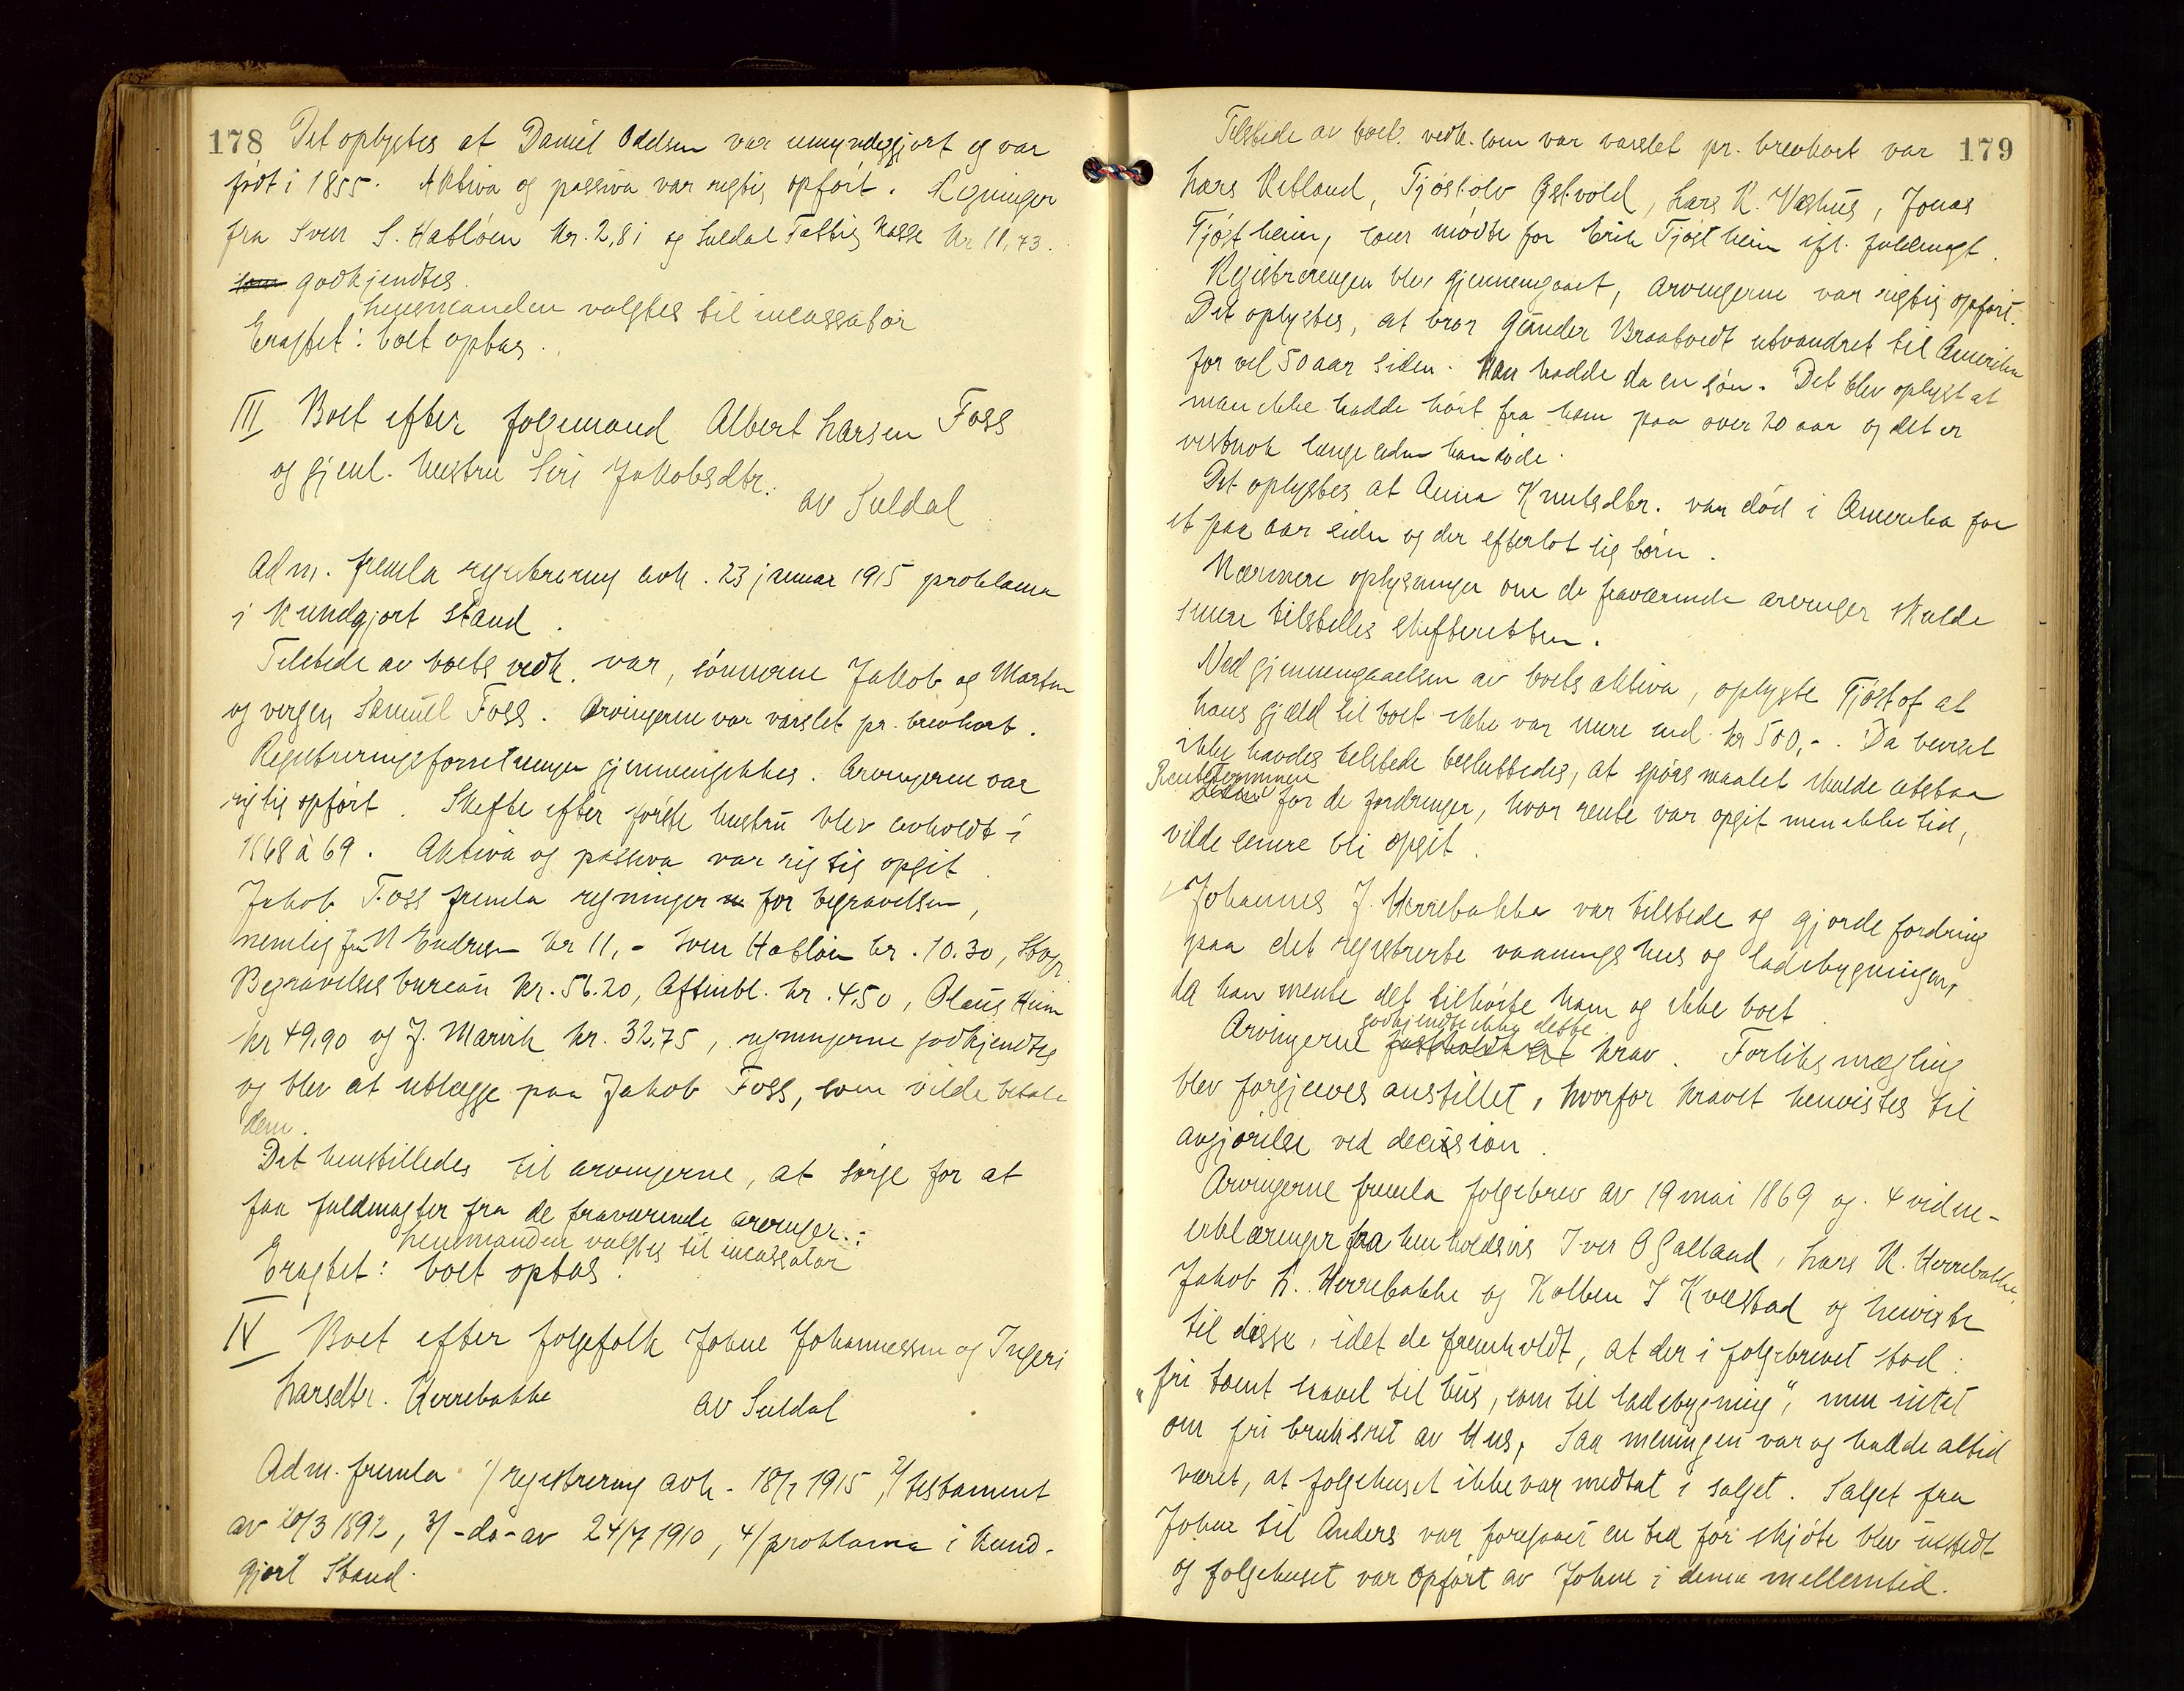 178 Det oplystes at Daniel Odelsen var umyndiggjort og var
født i 1855. Aktiva og passiva var rigtig opført. Regninger
fra Sven S. Habløen kr. 2,81 og Suldal Fattigkasse kr 11,73.
som godkjendtes.
lensmanden valgtes til incassator
Eragtet: boet optas.
III Boet efter folgemand Albert Larsen Foss
og gjenl. hustru Siri Jakobsdtr.
av Suldal
Adm. fremla registrering avh. 23 januar 1915 proklama
i kundgjort stand.
Tilstede av boets vedk. var, sønnerne Jakob og Martin
og vergen Samuel Foss. Arvingerne var varslet pr. brevkort.
Registreringsforretningen gjennemgikkes. Arvingerne var
rigtig opført. Skifte efter første hustru blev avholdt i
1868 à 69. Aktiva og passiva var rigtig opgit.
Jakob Foss fremla regninger for begravelsen,
nemlig fra N Endresen kr 11,- Sven Habløen kr. 10.30, Stavgr
Begravelsesbureau kr. 56.20, Aftenbl. kr. 4.50, Olaus Heim
kr 49,90 og J. Marvik kr. 32,75, regningerne godkjendtes
og blev at utlægge paa Jakob Foss, som vilde betale
dem.
Det henstilledes til arvingerne, at sørge for at
faa fuldmagter fra de fraværende arvinger.
lensmanden valgtes til incassator
Eragtet: boet optas.
IV Boet efter folgefolk Johne Johannessen og Ingeri
Larsdtr. Herrebakke av Suldal
Adm. fremla 1/ registrering avh. 18/1 1915, 2/ testament
av 20/3 1892, 3/ -do- av 24/7 1910, 4/ proklama i kund-
gjort stand.
Tilstede av boets vedk. som var varslet pr. brevkort var 179
Lars Kebland, Tjøstolv Østvold, Lars K. Væshus, Jonas
Tjøstheim, som mødte for Erik Tjøstheim ifl. fuldmagt.
Registreringen blev gjennemgaaet, arvingerne var rigtig opført.
Det oplystes, at bror Gunder Braatveit utvandret til Amerika
for vel 50 aar siden. Han hadde da en søn. Det blev oplyst at
man ikke hadde hørt fra ham paa over 20 aar og det er
vistnok længe siden han døde.
Det oplystes at Anna Knutsdtr. var død i Amerika for
et par aar siden og der efterlot sig børn.
Nærmere oplysninger om de fraværende arvinger skulde
senere tilstilles skifteretten.
Ved gjennemgaaelsen av boets aktiva, oplyste Tjøstof at
hans gjæld til boet ikke var mere end kr 500,-. Da beviset
ikke havdes tilstede besluttedes, at spørsmaalet skulde utstaa
Renteterminen
for de fordringer, hvor rente var opgit men ikke tid,
vilde senere bli opgit.
Johannes J. Herrebakke var tilstede og gjorde fordring
paa det registrerte vaaningshus og ladebygningen,
da han mente det tilhørte ham og ikke boet.
godkjendte ikke dette
Arvingerne krav. Forliksmægling
blev forgjæves anstillet, hvorfor kravet henvistes til
avgjørelse ved decision.
Arvingerne fremla folgebrev av 19 mai 1869 og 4 vidne-
erklæringer fra henholdsvis Iver O Galland, Lars K. Herrebakke,
Jakob L. Herrebakke og Kolben I Kvæstad og henviste
til disse, idet de fremholdt, at der i folgebrevet stod:
"fri tomt saavel til hus, som til ladebygning", men intet
om fri bruksret av hus, saa meningen var og hadde altid
været, at folgehuset ikke var medtat i salget. Salget fra
Johne til Anders var foregaaet en tid før skjøte blev utstedt
og folgehuset var opført av Johne i denne mellemtid.